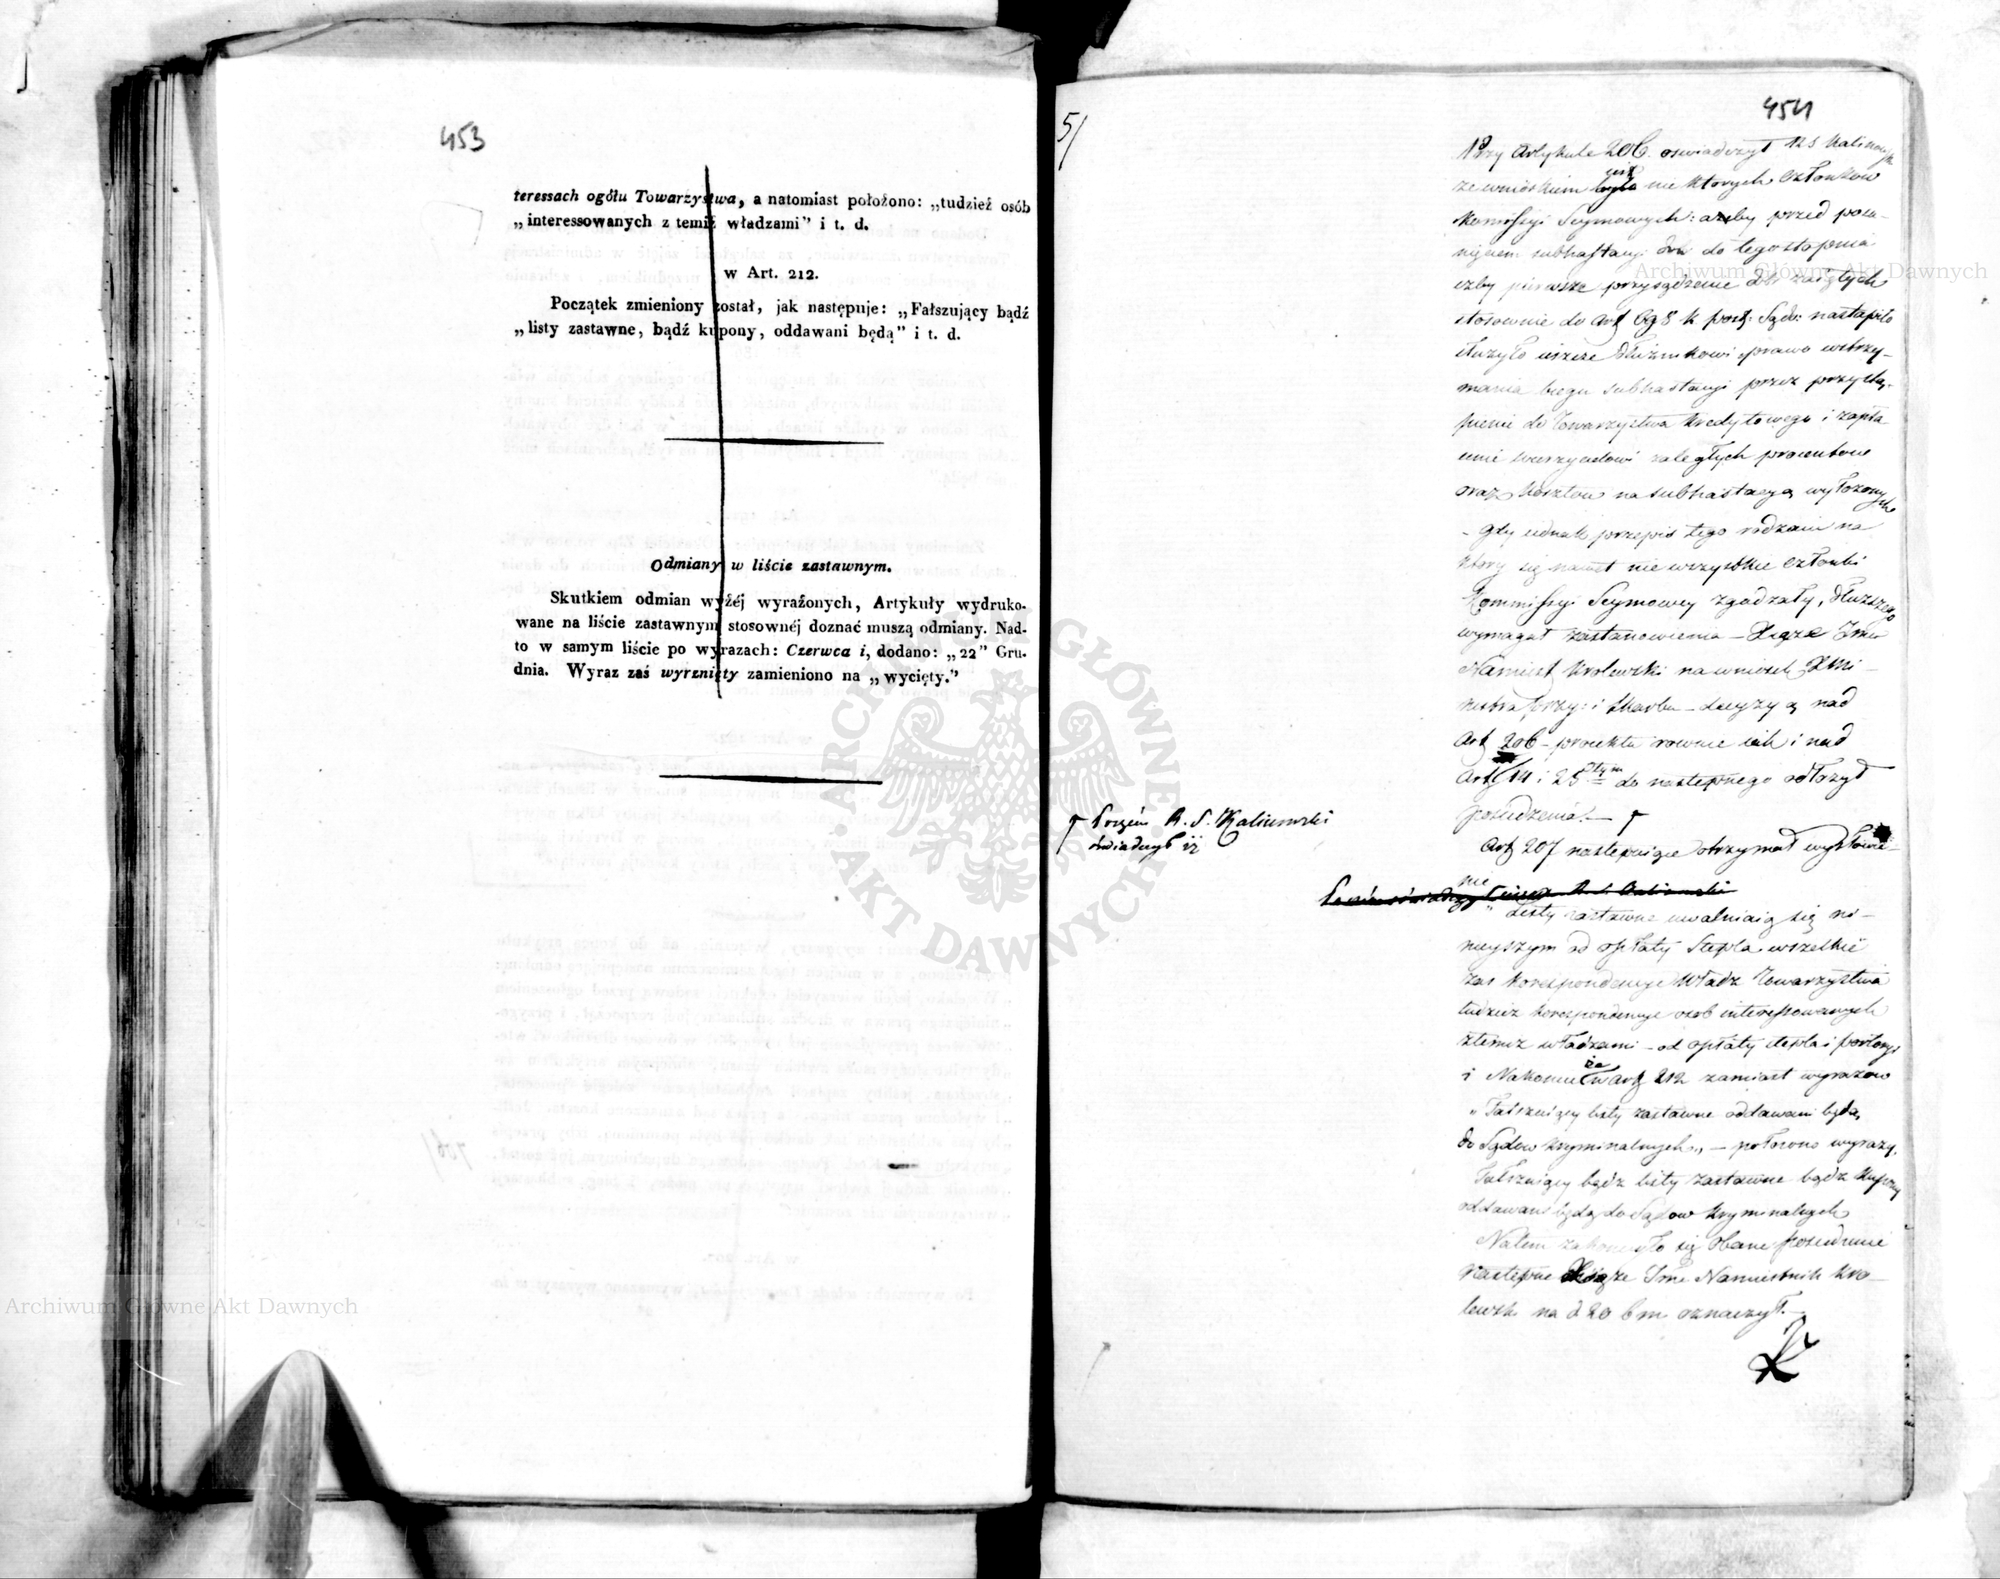 453
teressach ogółu Towarzystwa, a natomiast położono: „tudzież osób
„interessowanych z temiż władzami” i t. d.
w Art. 212.
Początek zmieniony został, jak następuje: „Fałszujący bądź
„listy zastawne, bądź kupony, oddawani będą” i t. d.
Odmiany w liście zastawnym.
Skutkiem odmian wyżéj wyrażonych, Artykuły wydruko-
wane na liście zastawnym stosownéj doznać muszą odmiany. Nad-
to w samym liście po wyrazach: Czerwca i, dodano: „22” Gru-
dnia. Wyraz zaś wyrznięty zamieniono na „wycięty.”
454
5/
Przy Artykule 206. oswiadczył R S Kalinowski
ze wnioskiem było niektorych Członkow
Kommissyi Seymowych: azeby przed
subhastacyi do tego stopnia
izby pierwsze przysądzenie dobr zaiętych
stosownie do Art 698 k post: Sądo: nastąpiło
służyło ieszcze dłużnikowi prawo wstrzy-
mania biegu subhastacyi przez przystą-
pienie do Towarzystwa Kredytowego i zapła
cenie wierzycielowi zaległych procentow
oraz kosztow na subhastacyą wyłożonych
- gdy iednak przepis tego rodzaiu na
ktory się nawet nie wszystkie Członki
Kommissyi Seymowey zgadzały, dłuższego
wymagał zastanowienia – Xiąże Jmć
Namiest Krolewski na wniosek Mini-
nistra przy: i Skarbu – decyzyą nad
Art 206 – proiektu rownie iak i nad
Art 14 i 25tym do następnego odłożył
posiedzenia. –
Poczém R. S. Kalinowski
óswiadczył iż
Art 207 następuiące otrzymał wysłowie-
nie
„Listy zastawne uwalniaią się ni-
nieyszym od opłaty Stępla wszelkie
zas korespondencye Władz Towarzystwa
tudzież korespondencye osob interessowanych
ztemiz władzami – od opłaty stępla i portoryi
i Nakoniec że w Art 212 zamiast wyrazow
„Fałszuiący listy zastawne oddawani będą
do Sądow kryminalnych„ – położono wyrazy.
Fałszuiący bądz listy zastawne bądz kupony
oddawani będą do Sądow kryminalnych
Natem zakonczyło się obecne posiedzenie
następne Xiąże Jmć Namiestnik Kro-
lewski na d 20 b m oznaczył. –
Archiwum Główne Akt Dawnych
Archiwum Główne Akt Dawnych
ARCHIWUM GŁÓWNE AKT DAWNYCH